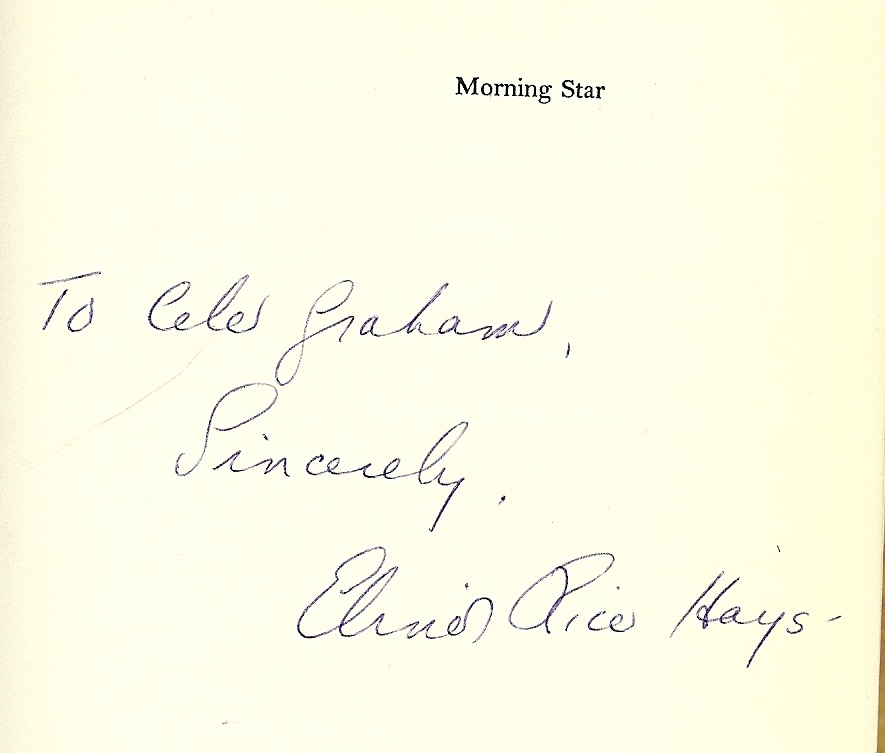 Morning Star
To Cele Graham,
Sincerely.
Elinor Rice Hays-